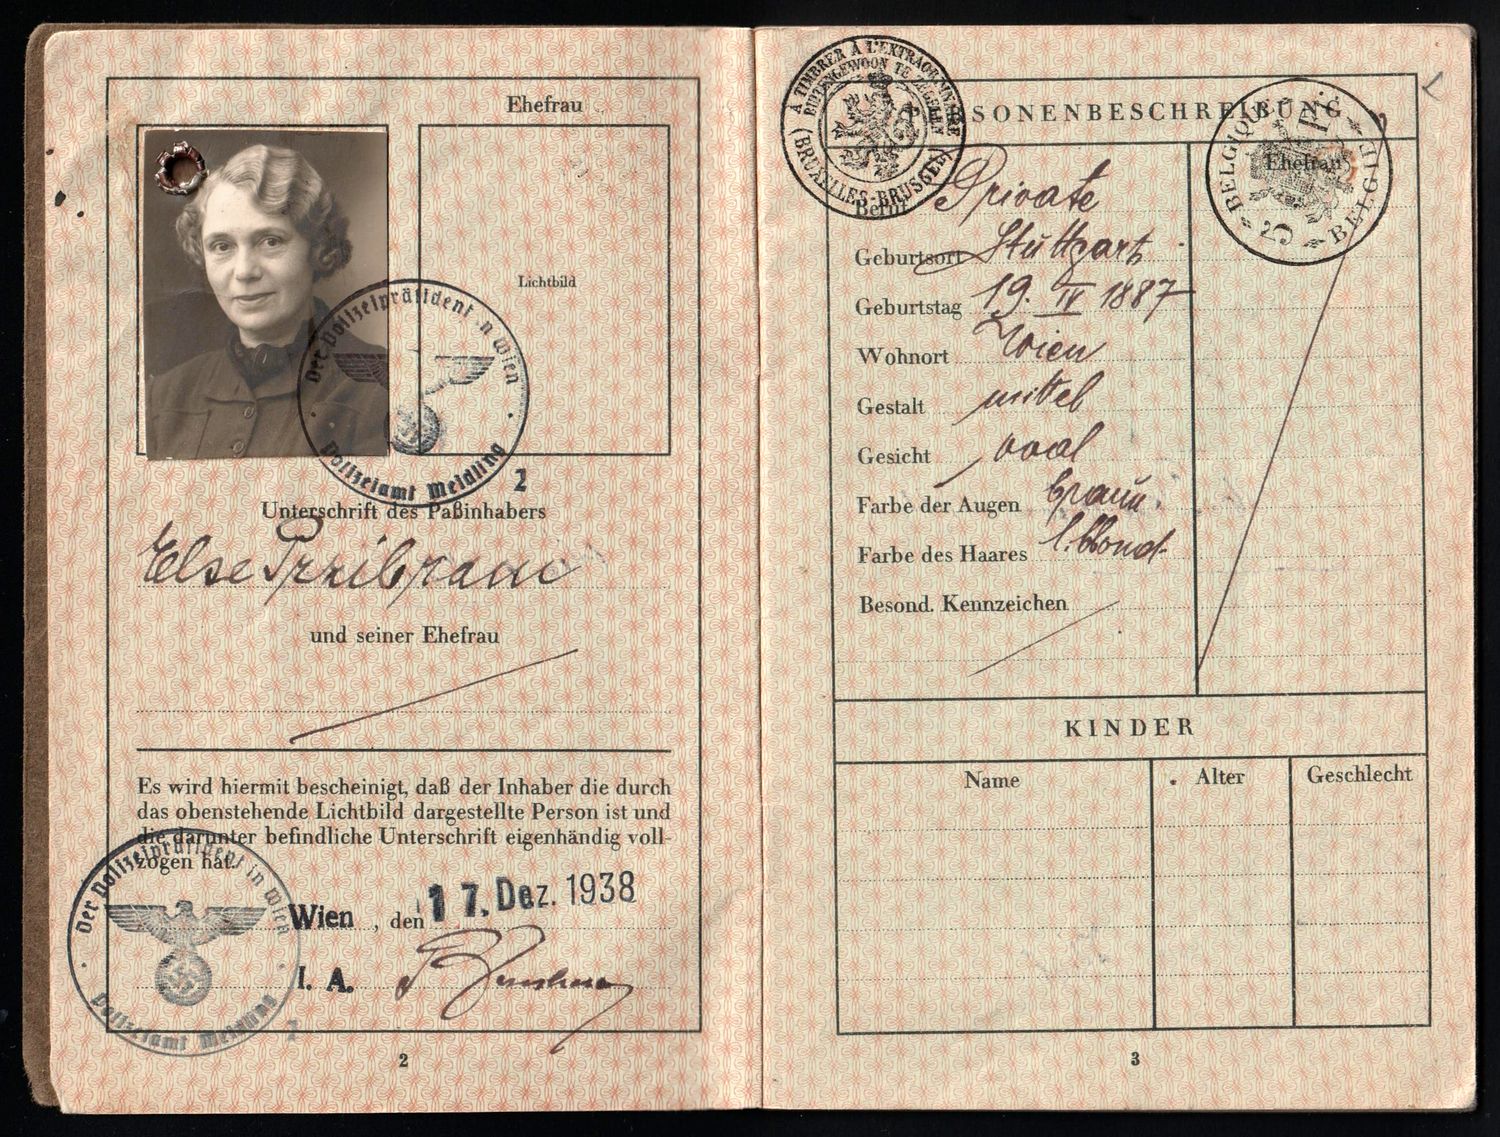 Ehefrau
Lichtbild
Der Polizeipräsident in Wien
Polizeiamt Meidling
2
Unterschrift des Paßinhabers
Else Przibram
und seiner Ehefrau
Es wird hiermit bescheinigt, daß der Inhaber die durch
das obenstehende Lichtbild dargestellte Person ist und
die darunter befindliche Unterschrift eigenhändig voll-
zogen hat.
Der Polizeipräsident in Wien
Polizeiamt Meidling
2
Wien, den 17. Dez. 1938
I. A.
2
À TIMBRER À L'EXTRAORDINAIRE
BUITENGEWOON TE ZEGELEN
BRUXELLES-BRUSSEL
PERSONENBESCHREIBUNG
BELGIQUE
BELGIË
Ehefrau
Beruf Private
Geburtsort Stuttgart
Geburtstag 19. IV 1887
Wohnort Wien
Gestalt mittel
Gesicht oval
Farbe der Augen braun
Farbe des Haares l. blond
Besond. Kennzeichen
KINDER
Name Alter Geschlecht
3